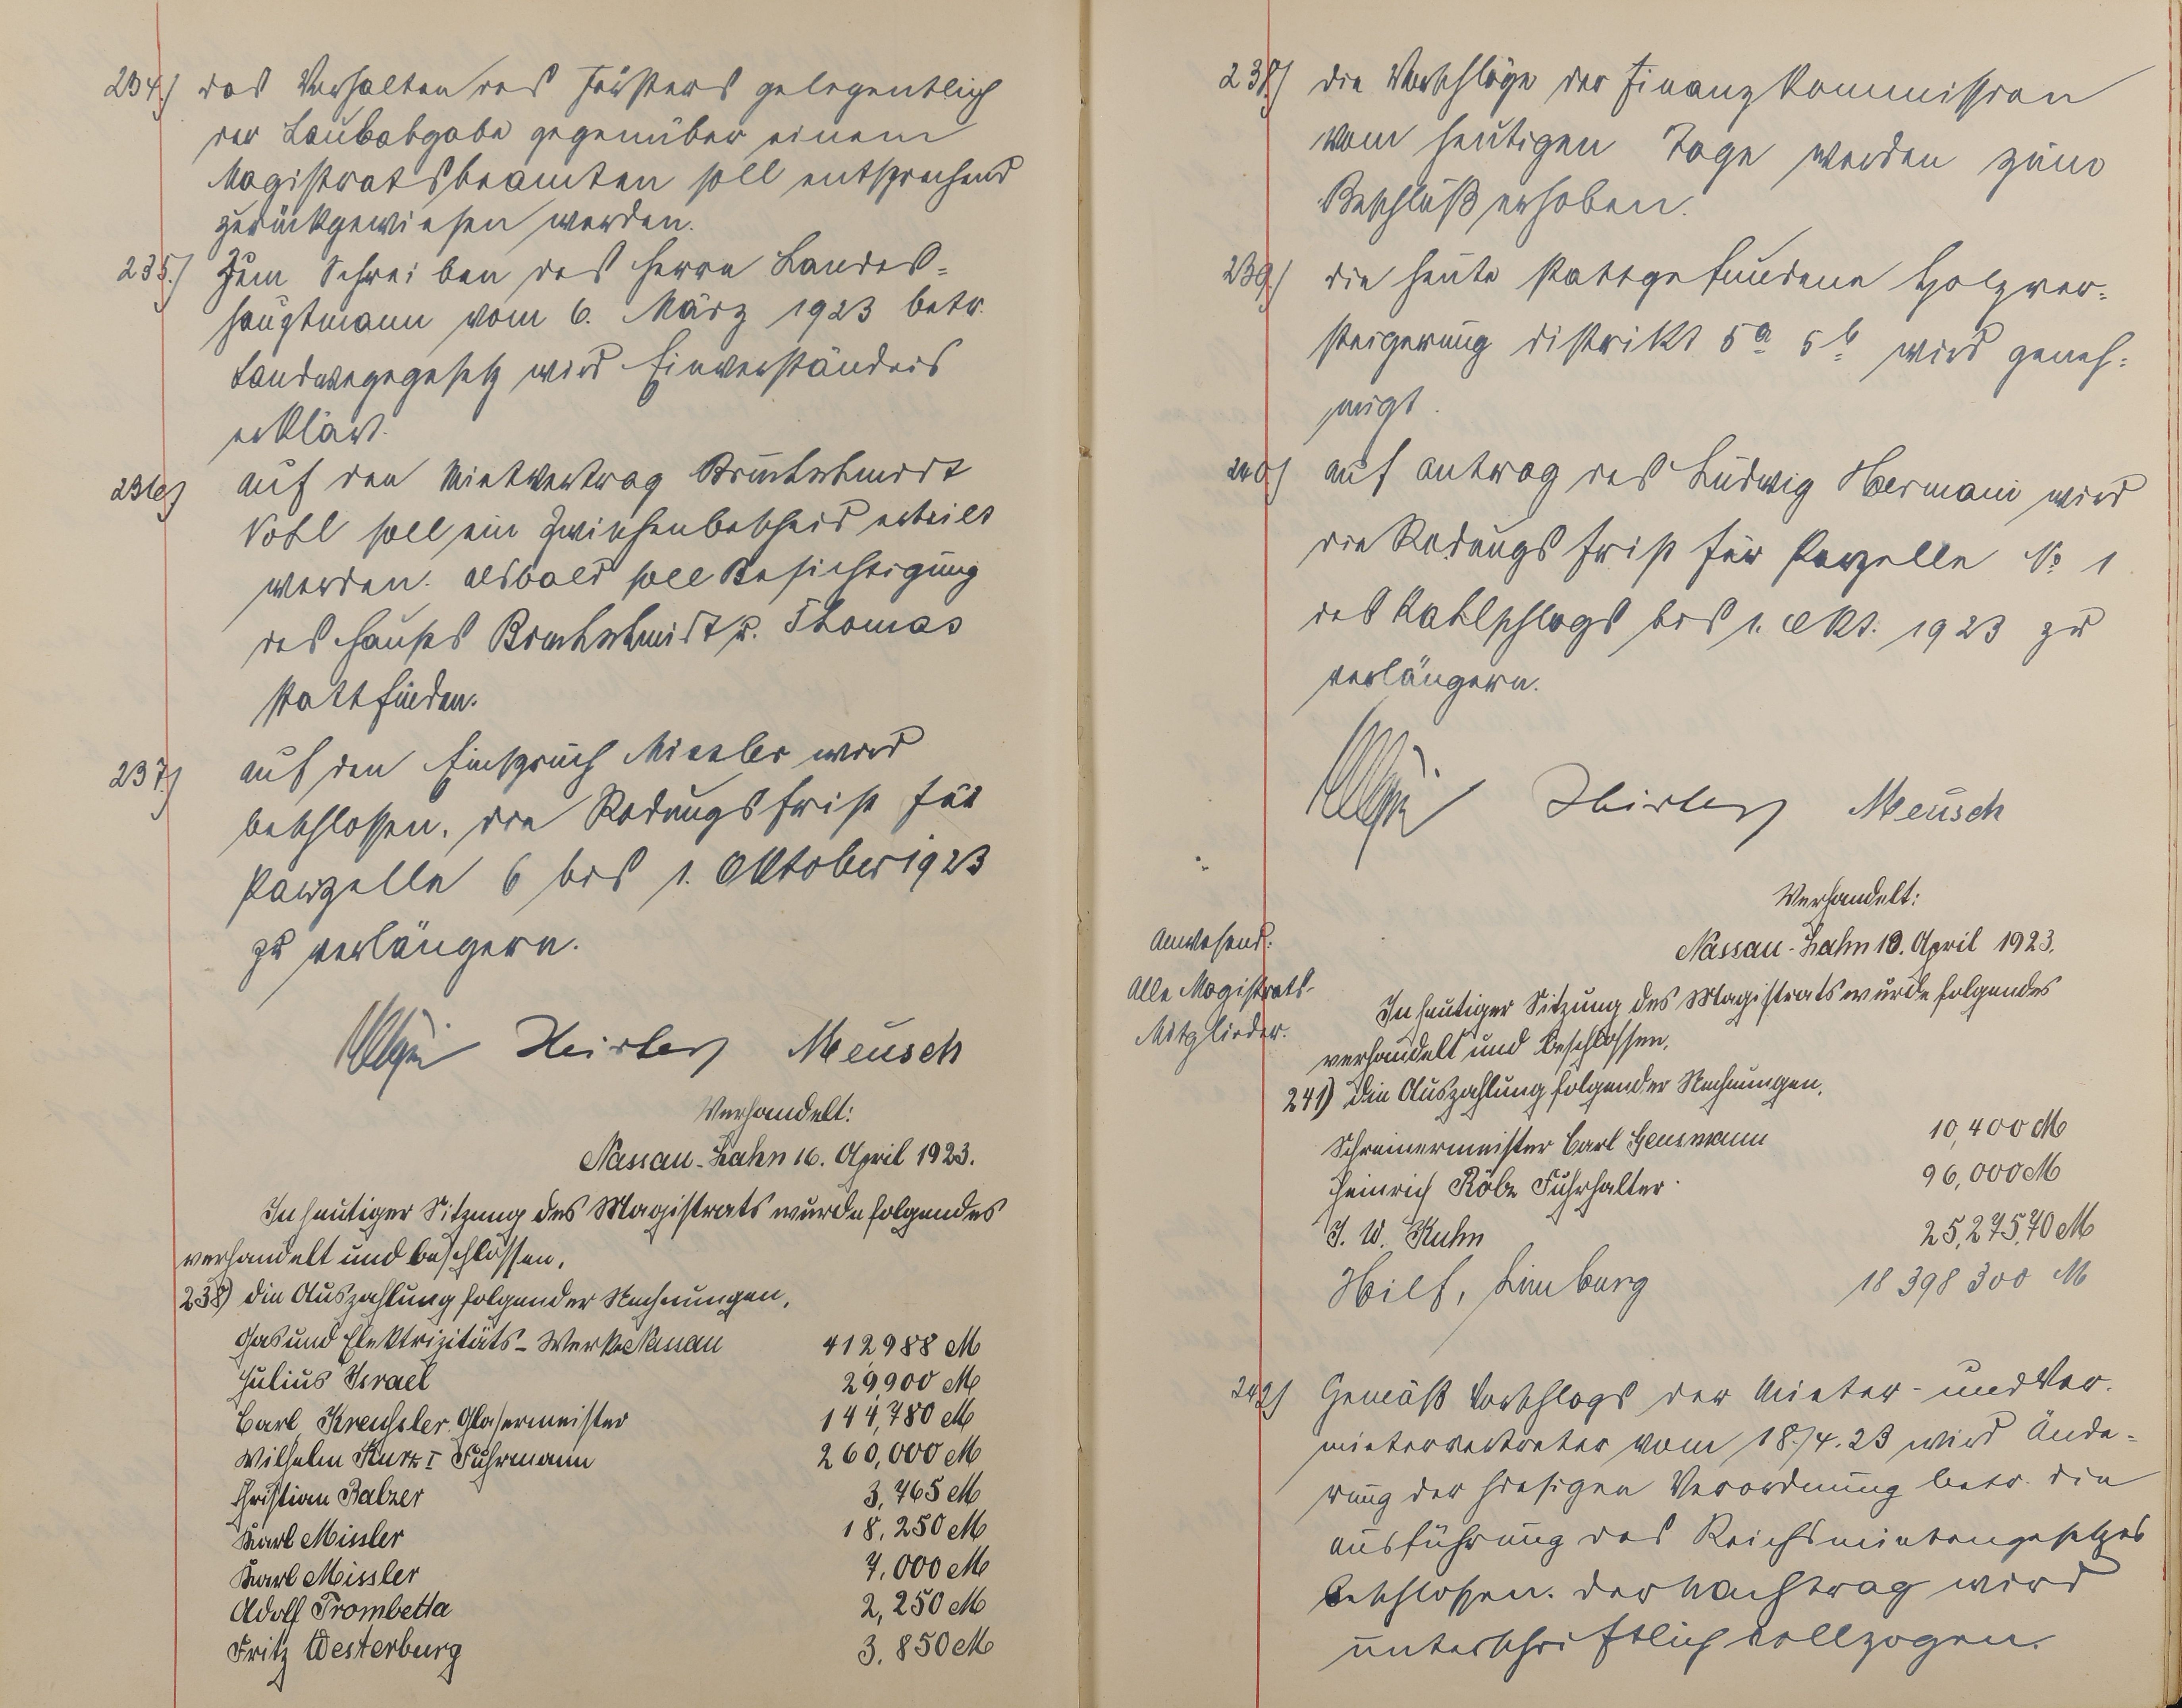 234.) das Verhalten des Försters gelegentlich
der Laubabgabe gegenüber einem
Magistratsbeamten soll entsprechend
zurückgewiesen werden.
235.) Zum Schreiben des Herrn Landes-
hauptmann vom 6. März 1923 betr.
Landwegegesetz wird Einverständnis
erklärt.
236.) auf den Mietvertrag Bruchschmidt
Vohl soll ein Zwischenbescheid erteilt
werden. alsbald soll Besichtigung
des Hauses Bruchschmidt u. Thomas
stattfinden.
237.) auf den Einspruch Missler wird
beschlossen, die Rodungsfrist für
Parzelle 6 bis 1. Oktober 1923
zu verlängern.
Meusch
Verhandelt:
Nassau-Lahn 16. April 1923.
In heutiger Sitzung des Magistrats wurde folgendes
verhandelt und beschlossen,
238) die Auszahlung folgender Rechnungen,
Gas und Elektrizitäts-Werke Nassau 412988 M
Julius Israel 29,900 M
Carl Kreuhsler Glasermeister 144,780 M
Wilhelm Kurz I Fuhrmann 260,000 M
Christian Balzer 3,765 M
Karl Missler 18,250 M
Karl Missler 7,000 M
Adolf Trombetta 2,250 M
Fritz Westerburg 3,850 M
238.) die Vorschläge der Finanzkommission
vom heutigen Tage werden zum
Beschluß erhoben.
239.) die heute stattgefundene Holzver-
steigerung Distrikt 5a 5b wird geneh-
migt.
240.) auf Antrag des Ludwig Hermani wird
die Rodungsfrist für Parzelle № 1
des Kahlschlags bis 1. Okt. 1923 zu
verlängern.
Meusch
Verhandelt:
Nassau-Lahn 18. April 1923.
Anwesend:
Alle Magistrats-
Mitglieder.
In heutiger Sitzung des Magistrats wurde folgendes
verhandelt und beschlossen,
241) die Auszahlung folgender Rechnungen,
Schreinermeister Carl Heusmann 10,400 M
Heinrich Röbe Fuhrhalter 96,000 M
J. W. Kuhn 25,275,70 M
Hilf, Limburg 18 398 300 M
242.) Gemäß Vorschlags der Mieter- und Ver-
mietervertreter vom 18./4.23 wird Ände-
rung der hiesigen Verordnung betr. die
ausführung des Reichsmietengesetzes
beschlossen. der Nachtrag wird
unterschriftlich vollzogen.